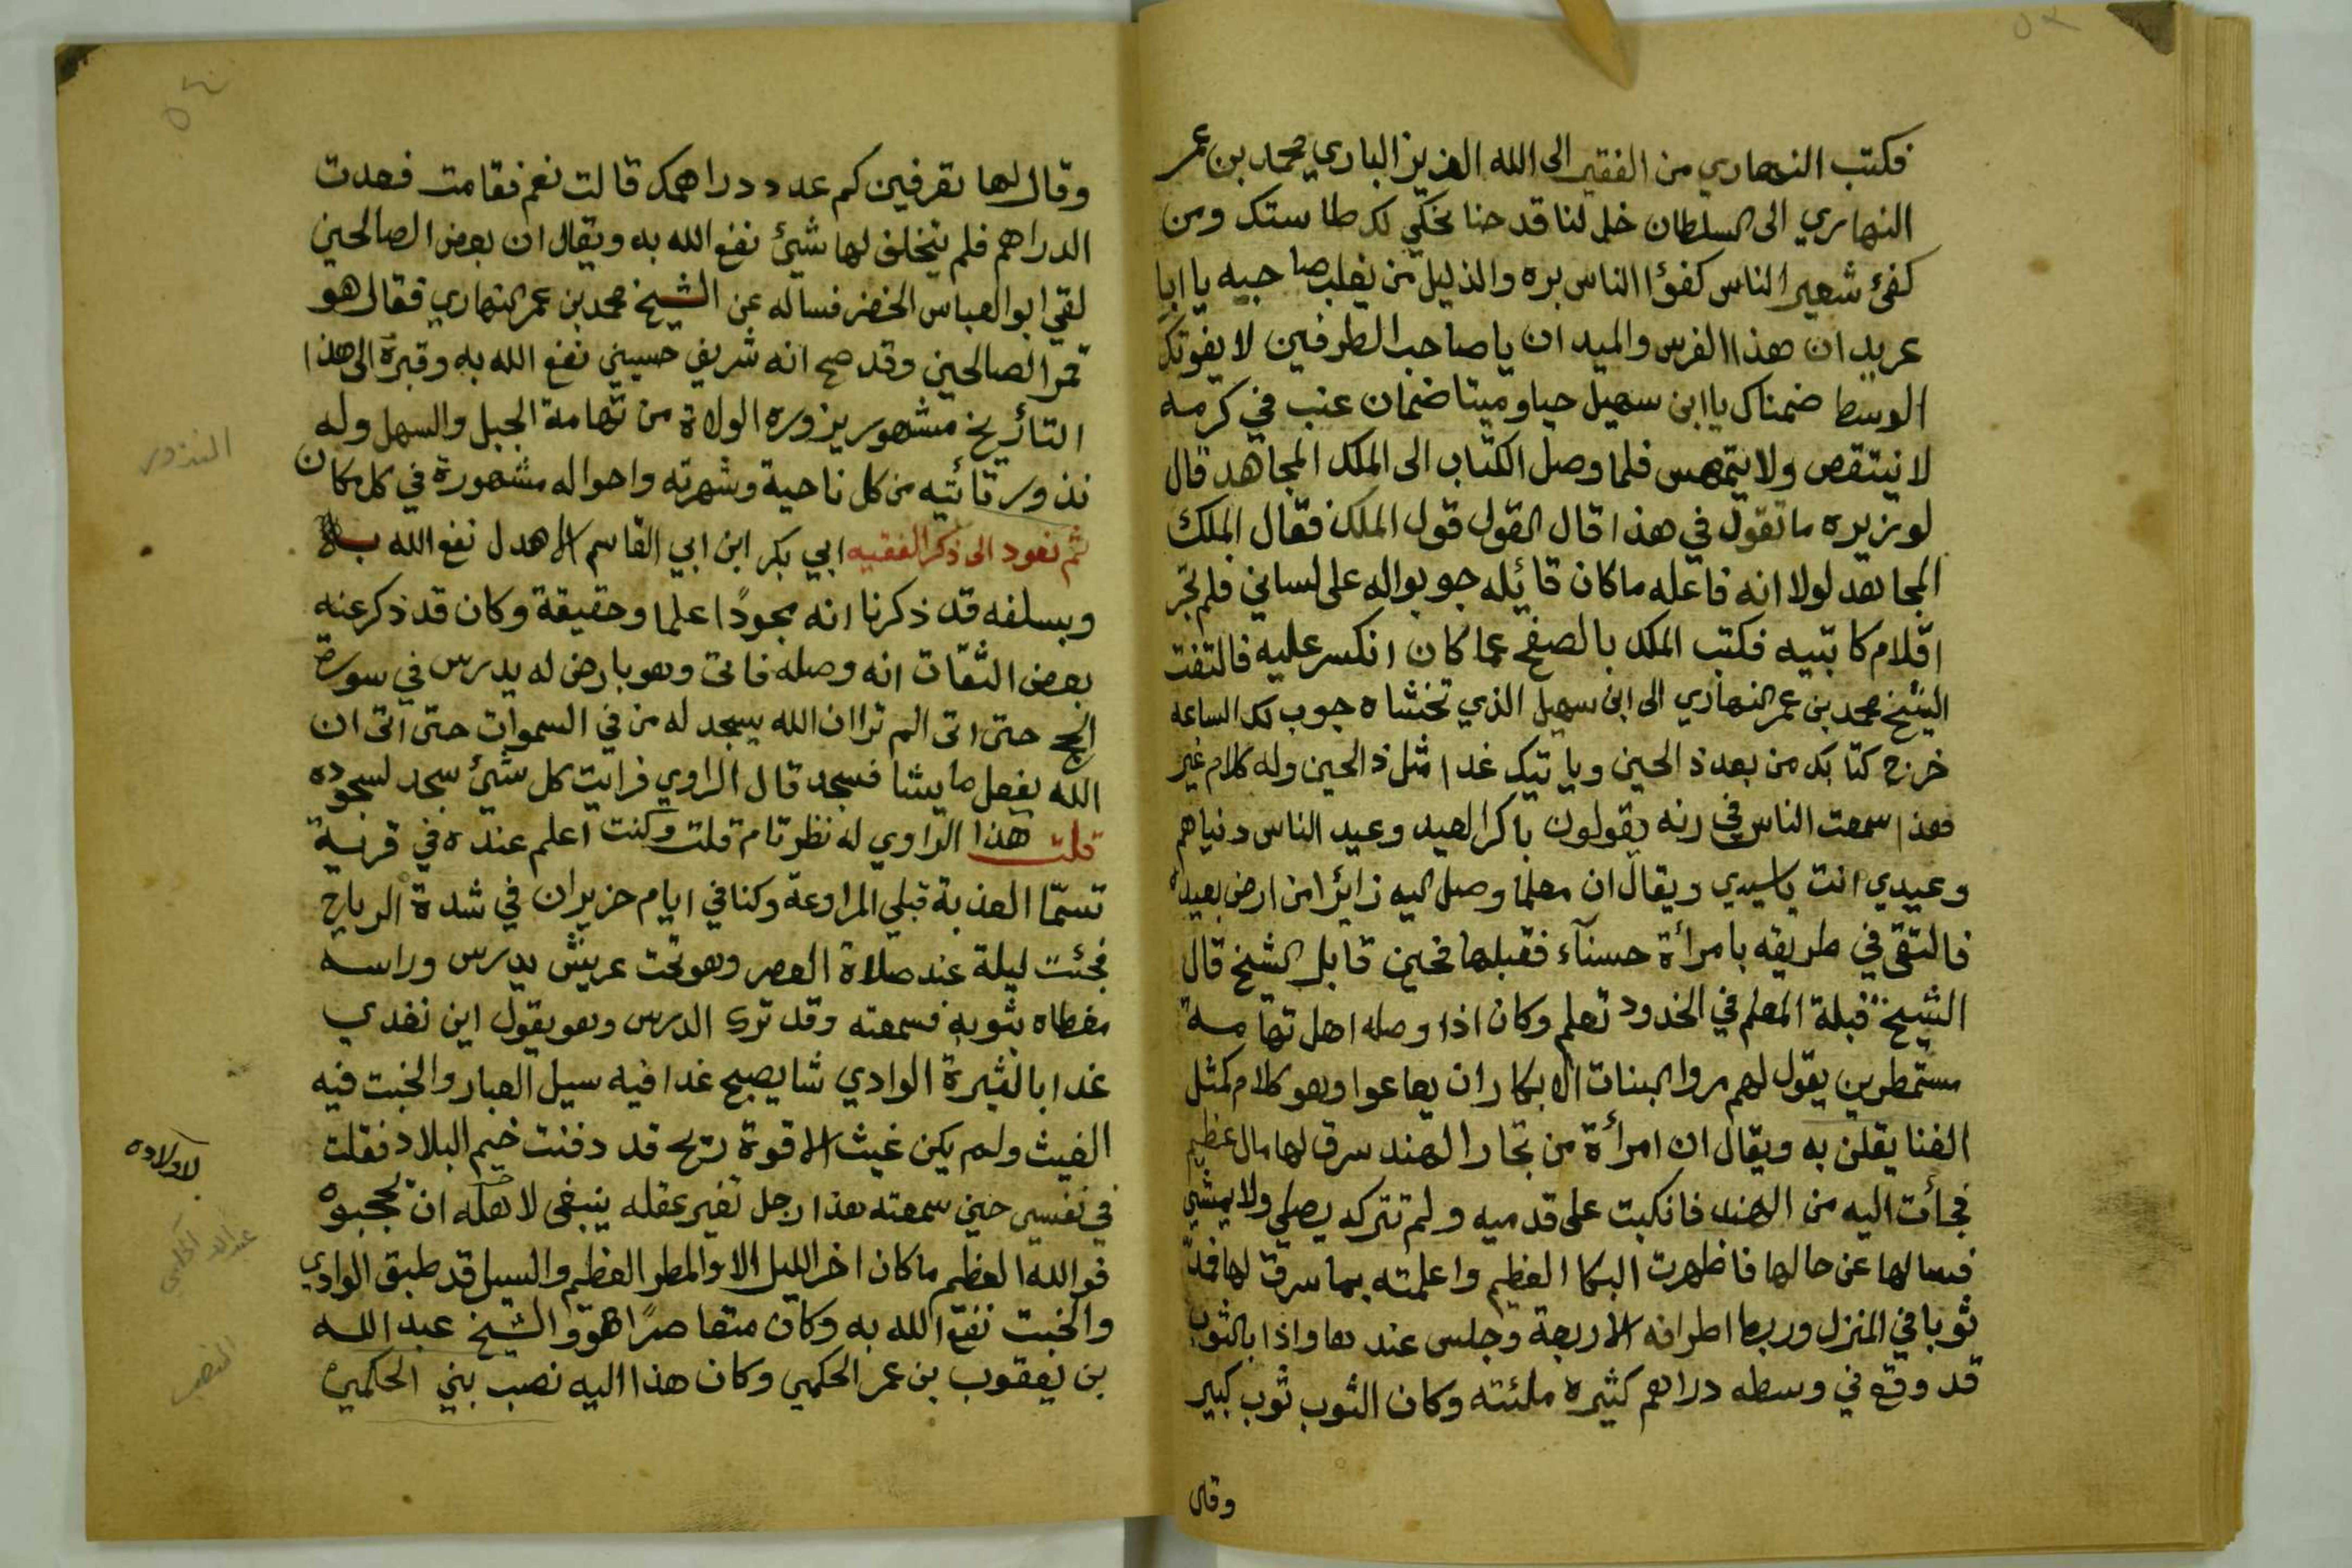 فكتب النهاري من الفقير الى الله العزيز الباري محمد بن عمر
النهاري الى السلطان خل لنا قدحنا نخلي لك طاستك ومن
كفئ شعير الناس كفؤا الناس بره والذليل من يغلب صاحبه يا ابا
عريدان هذا الفرس والميدان يا صاحب الطرفين لا يفوتك
الوسط ضمناك يا ابن سهيل حيا وميتا ضمان عنب في كرمه
لا نيتقص ولا يتمهس فلما وصل الكتاب الى الملك المجاهد قال
لوزيره ما تقول في هذا قال القول قول الملك فقال الملك
المجاهد لولا انه فاعله ما كان قائله جوبوا له على لساني فلم تجر
اقلام كاتبيه فكتب الملك بالصفح عما كان انكسر عليه فالتفت
الشيخ محمد بن عمر النهاري الى ابن سهيل الذي تخشاه جوب لك الساعه
خرج كتابك من بعد ذالحين وياتيك غدا مثل ذالحين وله كلام غير
هذا سمعت الناس في رنه يقولون باكر العيد وعيد الناس دنياهم
وعيدي انت ياسيدي ويقال ان معلما وصل اليه زائرا من ارض بعيده
فالتقى في طريقه بامرأة حسنآء فقبلها فحين قابل الشيخ قال
الشيخ قبلة المعلم في الخدود تعلم وكان اذا وصله اهل تهامة
مستمطرين يقول لهم مروا البنات الابكار ان يهاعوا وهو كلام كمثل
الغنا يقلن به ويقال ان امرأة من تجار الهند سرق لها مال عظيم
فجأت اليه من الهند فانكبت على قدميه ولم تتركه يصلي ولا يمشي
فسالها عن حالها فاظهرت البكا العظيم واعلمته بما سرق لها فمد
ثوبا في المنزل وربط اطرافه الاربعة وجلس عندها واذا بالثوب
قد وقع في وسطه دراهم كثيره ملئته وكان الثوب ثوب كبير
وقال
وقال لها تعرفين كم عدد دراهمك قالت نعم فقامت فعدت
الدراهم فلم يتخلف لها شيئ نفع الله به ويقال ان بعض الصالحين
لقي ابو العباس الخضر فساله عن الشيخ محمد بن عمر النهاري فقال هو
قمر الصالحين وقد صح انه شريف حسيني نفع الله به وقبره الى هذا
التأريخ مشهور يزوره الولاة من تهامة الجبل والسهل وله
نذور تأتيه من كل ناحية وشهرته واحواله مشهورة في كل مكان
النذور
ثم نعود الى ذكر الفقيه ابي بكر ابن ابي القاسم الاهدل نفع الله به
وبسلفه قد ذكرنا انه مجودًا علما وحقيقة وكان قد ذكر عنه
بعض الثقات انه وصله فاتى وهو بارض له يدرس في سورة
الحج حتى اتى الم ترا ان الله يسجد له من في السموات حتى اتى ان
الله يفعل ما يشا فسجد قال الراوي فرايت كل شيئ سجد لسجوده
قلت هذا الراوي له نظر تام قلت وكنت اعلم عنده في قرية
تسمّا العذبة قبلي المراوعة وكنا في ايام حزيران في شدة الرياح
فجئت ليلة عند صلاة العصر وهو تحت عريش يدرس وراسه
مغطاه بثوبه فسمعته وقد ترك الدرس وهو يقول اين نغدي
غدا بالثيرة الوادي شا يصبح غدا فيه سيل العبار والخبت فيه
الغيث ولم يكن غيث الا قوة ريح قد دفنت خيم البلاد فقلت
لاولاده
في نفسي حين سمعته هذا رجل تغير عقله ينبغى لاهله ان يحجبوه
فو الله العظيم ما كان اخر الليل الا والمطر العظيم والسيل قد طبق الوادي
والخبت نفع الله به وكان متعاصرًا هو والشيخ عبد الله
بن يعقوب بن عمر الحكمي وكان هذا اليه نصب بني الحكمي
المنصب